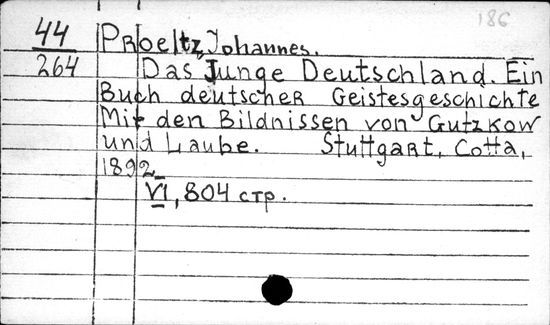 186
44
264
Proeltz, Johannes.
Das Junge Deutschland. Ein
Buch deutscher Geistesgeschichte
Mit den Bildnissen von Gutzkow
und Laube. Stuttgart, Cotta,
1892
VI, 804 стр.